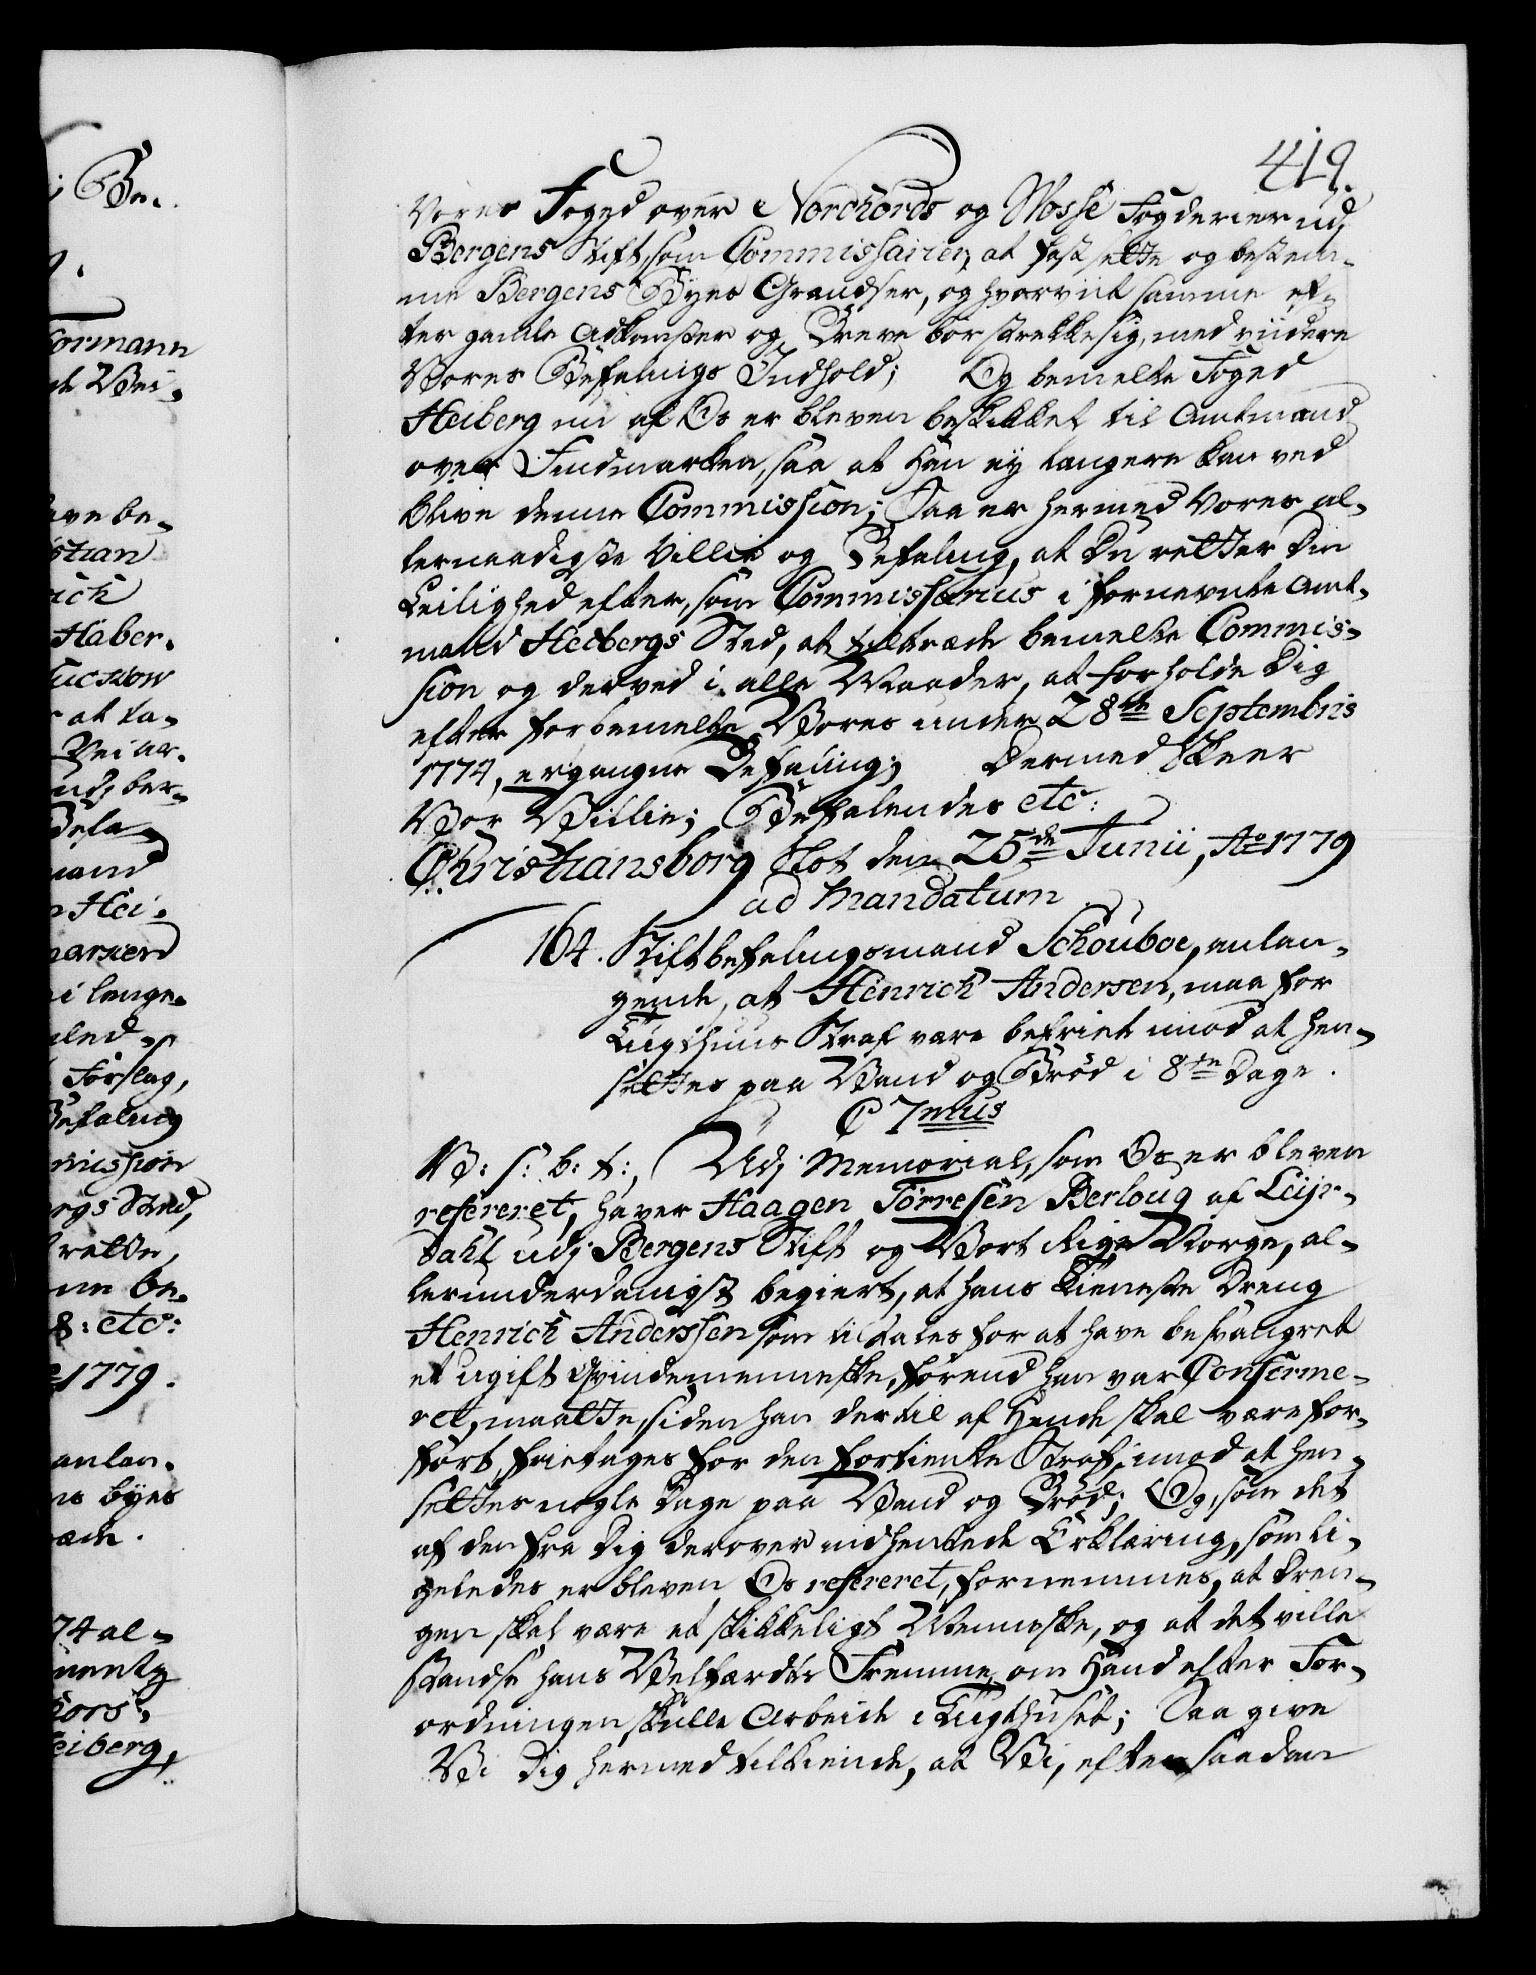 419.
Vores Foged over Nordhords og Wosse Fogderier ud,
Bergens Stift, som Commissairer, at fastsette og bestem-
me Bergens Byes Grændser, og hvorvit samme ef-
ter gamle Adkomster og Breve bør strekke sig, med viidere
Vores Befalings Indhold; Og bemelte Foged
Heiberg nu af Os er bleven beskikket til Amtmand
over Findmarken, saa at han ey længere kan ved
blive denne Commission; Saa er hermed Vores al-
lernaadigste Villie og Befaling, at Du retter Din
Leilighed efter, som Commissarius i fornevnte Amt-
mand Heibergs Sted, at tiltræde bemelte Commis-
sion og derved i alle Maader, at forholde Dig
efter forbemelte Vores under 28de Septembris
1774, ergangne Befaling; Dermed Skeer
Vor Villie; Befalendes etc:
Christiansborg Slot den 25de Junii, Ao 1779
ad Mandatum
164. Stiftbefalingsmand Schouboe, anlan-
gende, at Henrich Andersen, maa for
Tugthuus Straf være befriet imod at hen-
settes paa Vand og Brød i 8te Dage.
C 7mus
V: s: b: t:, Udj Memorial, som Os er bleven
refereret, haver Haagen Torresen Berloug af Leyr-
dahl udj Bergens Stift og Vort Rige Norge, al-
lerunderdanigst begiert, at hans Tieneste Dreng
Henrich Anderssen som tiltales for at have besvangret
et ugift Qvindemenneske, førend han var Confirme-
ret, maatte, siden han dertil af Hende skal være for-
ført, fritages for den fortiente Straf, imod at hen-
settes nogle Dage paa Vand og Brød; Og, som det
af den fra Dig derover indhentede Erklæring, som li-
geledes er bleven Os refereret, fornemmes, at Dren-
gen skal være et skikkeligt Menneske, og at det ville
standse hans Velfærdts Fremme, om Hand efter For-
ordningen skulle Arbeide i Tugthuset; Saa give
Vi Dig hermed tilkiende, at Vi, efter saadan